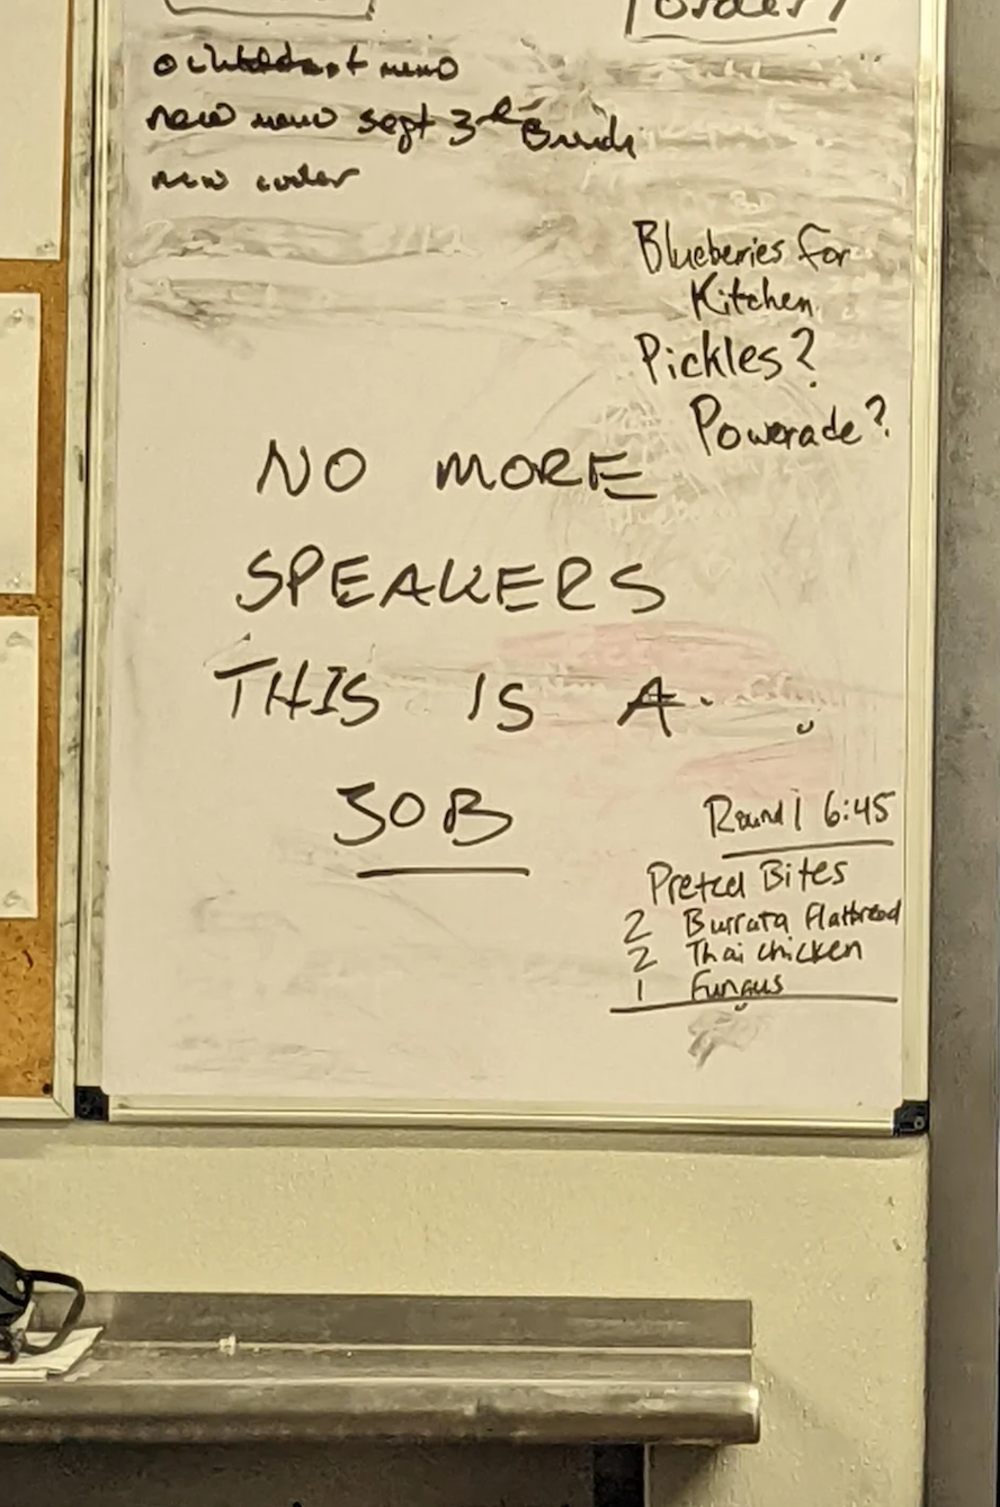 order
menu
new menu sept 3rd Brunch
new cooler
Blueberies for
Kitchen
Pickles?
Powerade?
NO MORE
SPEAKERS
THIS IS A
JOB
Round 1 6:45
Pretzel Bites
2 Burrata Flatbread
2 Thai chicken
1 Fungus